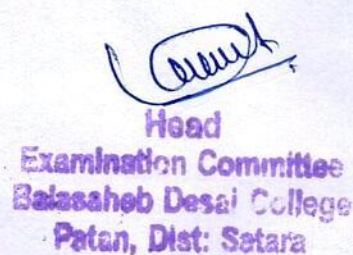 Head
Examination Committee
Balasaheb Desai College
Patan, Dist: Satara